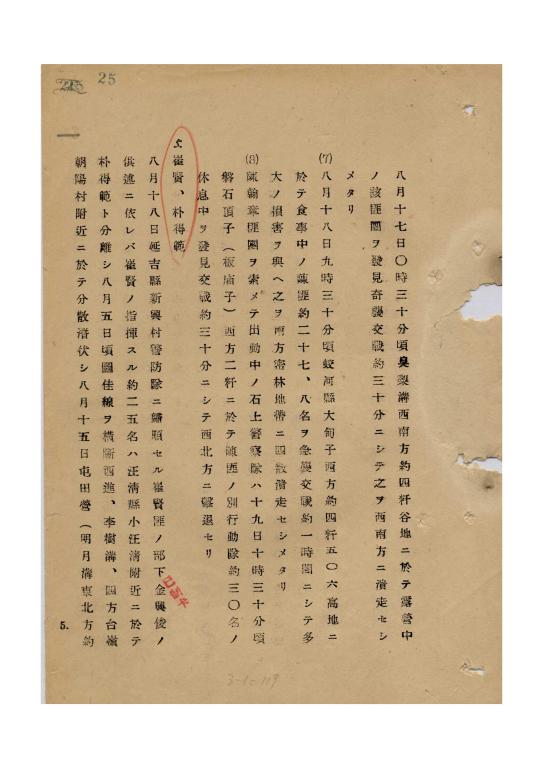 25
八月十七日〇時三十分頃臭梨溝西南方約四粁谷地ニ於テ露營中
ノ該匪團ヲ發見奇襲交戰約三十分ニシテ之ヲ西南方ニ潰走セシ
メタリ
(7) 八月十八日九時三十分頃蛟河縣大甸子西方約四粁五〇六高地ニ
於テ食事中ノ陳匪約二十七、八名ヲ急襲交戰約一時間ニシテ多
大ノ損害ヲ與ヘ之ヲ西方密林地帶ニ四散潰走セシメタリ
(8) 陳翰章匪團ヲ索メテ出動中ノ石上警察隊ハ十九日十時三十分頃
磐石頂子(板庙子)西方二粁ニ於テ陳匪ノ別行動隊約三〇名ノ
休息中ヲ發見交戰約三十分ニシテ西北方ニ擊退セリ
崔賢、朴得範
八月十八日延吉縣新興村警防隊ニ歸順セル崔賢匪ノ部下金興俊ノ
供述ニ依レバ崔賢ノ指揮スル約二五名ハ汪淸縣小汪淸附近ニ於テ
朴得範ト分離シ八月五日頃圖佳線ヲ橫斷西進、李樹溝、四方台嶺
朝陽村附近ニ於テ分散潛伏シ八月十五日屯田營(明月溝東北方約
5.
3-10-119